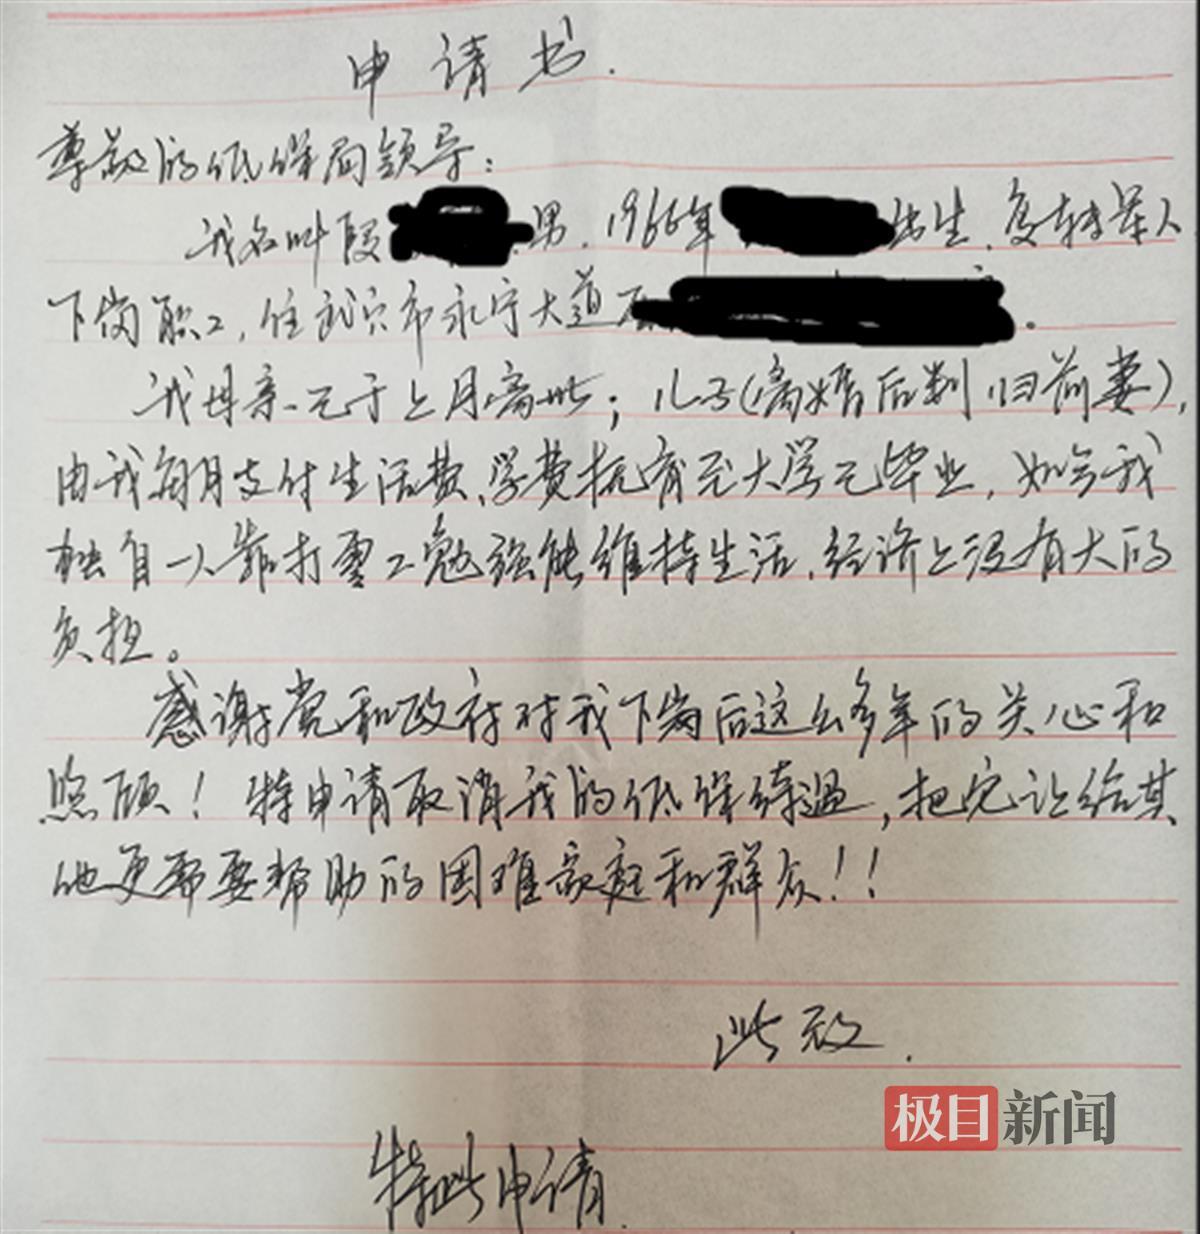 申请书.
尊敬的低保局领导:
我名叫段 男.1966年 出生,复转军人
下岗职工,住武穴市永宁大道 .
我母亲已于上月离世;儿子(离婚后判归前妻),
由我每月支付生活费、学费抚育至大学已毕业,如今我
独自一人靠打零工勉强能维持生活,经济上没有大的
负担。
感谢党和政府对我下岗后这么多年的关心和
照顾!特申请取消我的低保待遇,把它让给其
他更需要帮助的困难家庭和群众!!
此致.
极目新闻
特此申请.